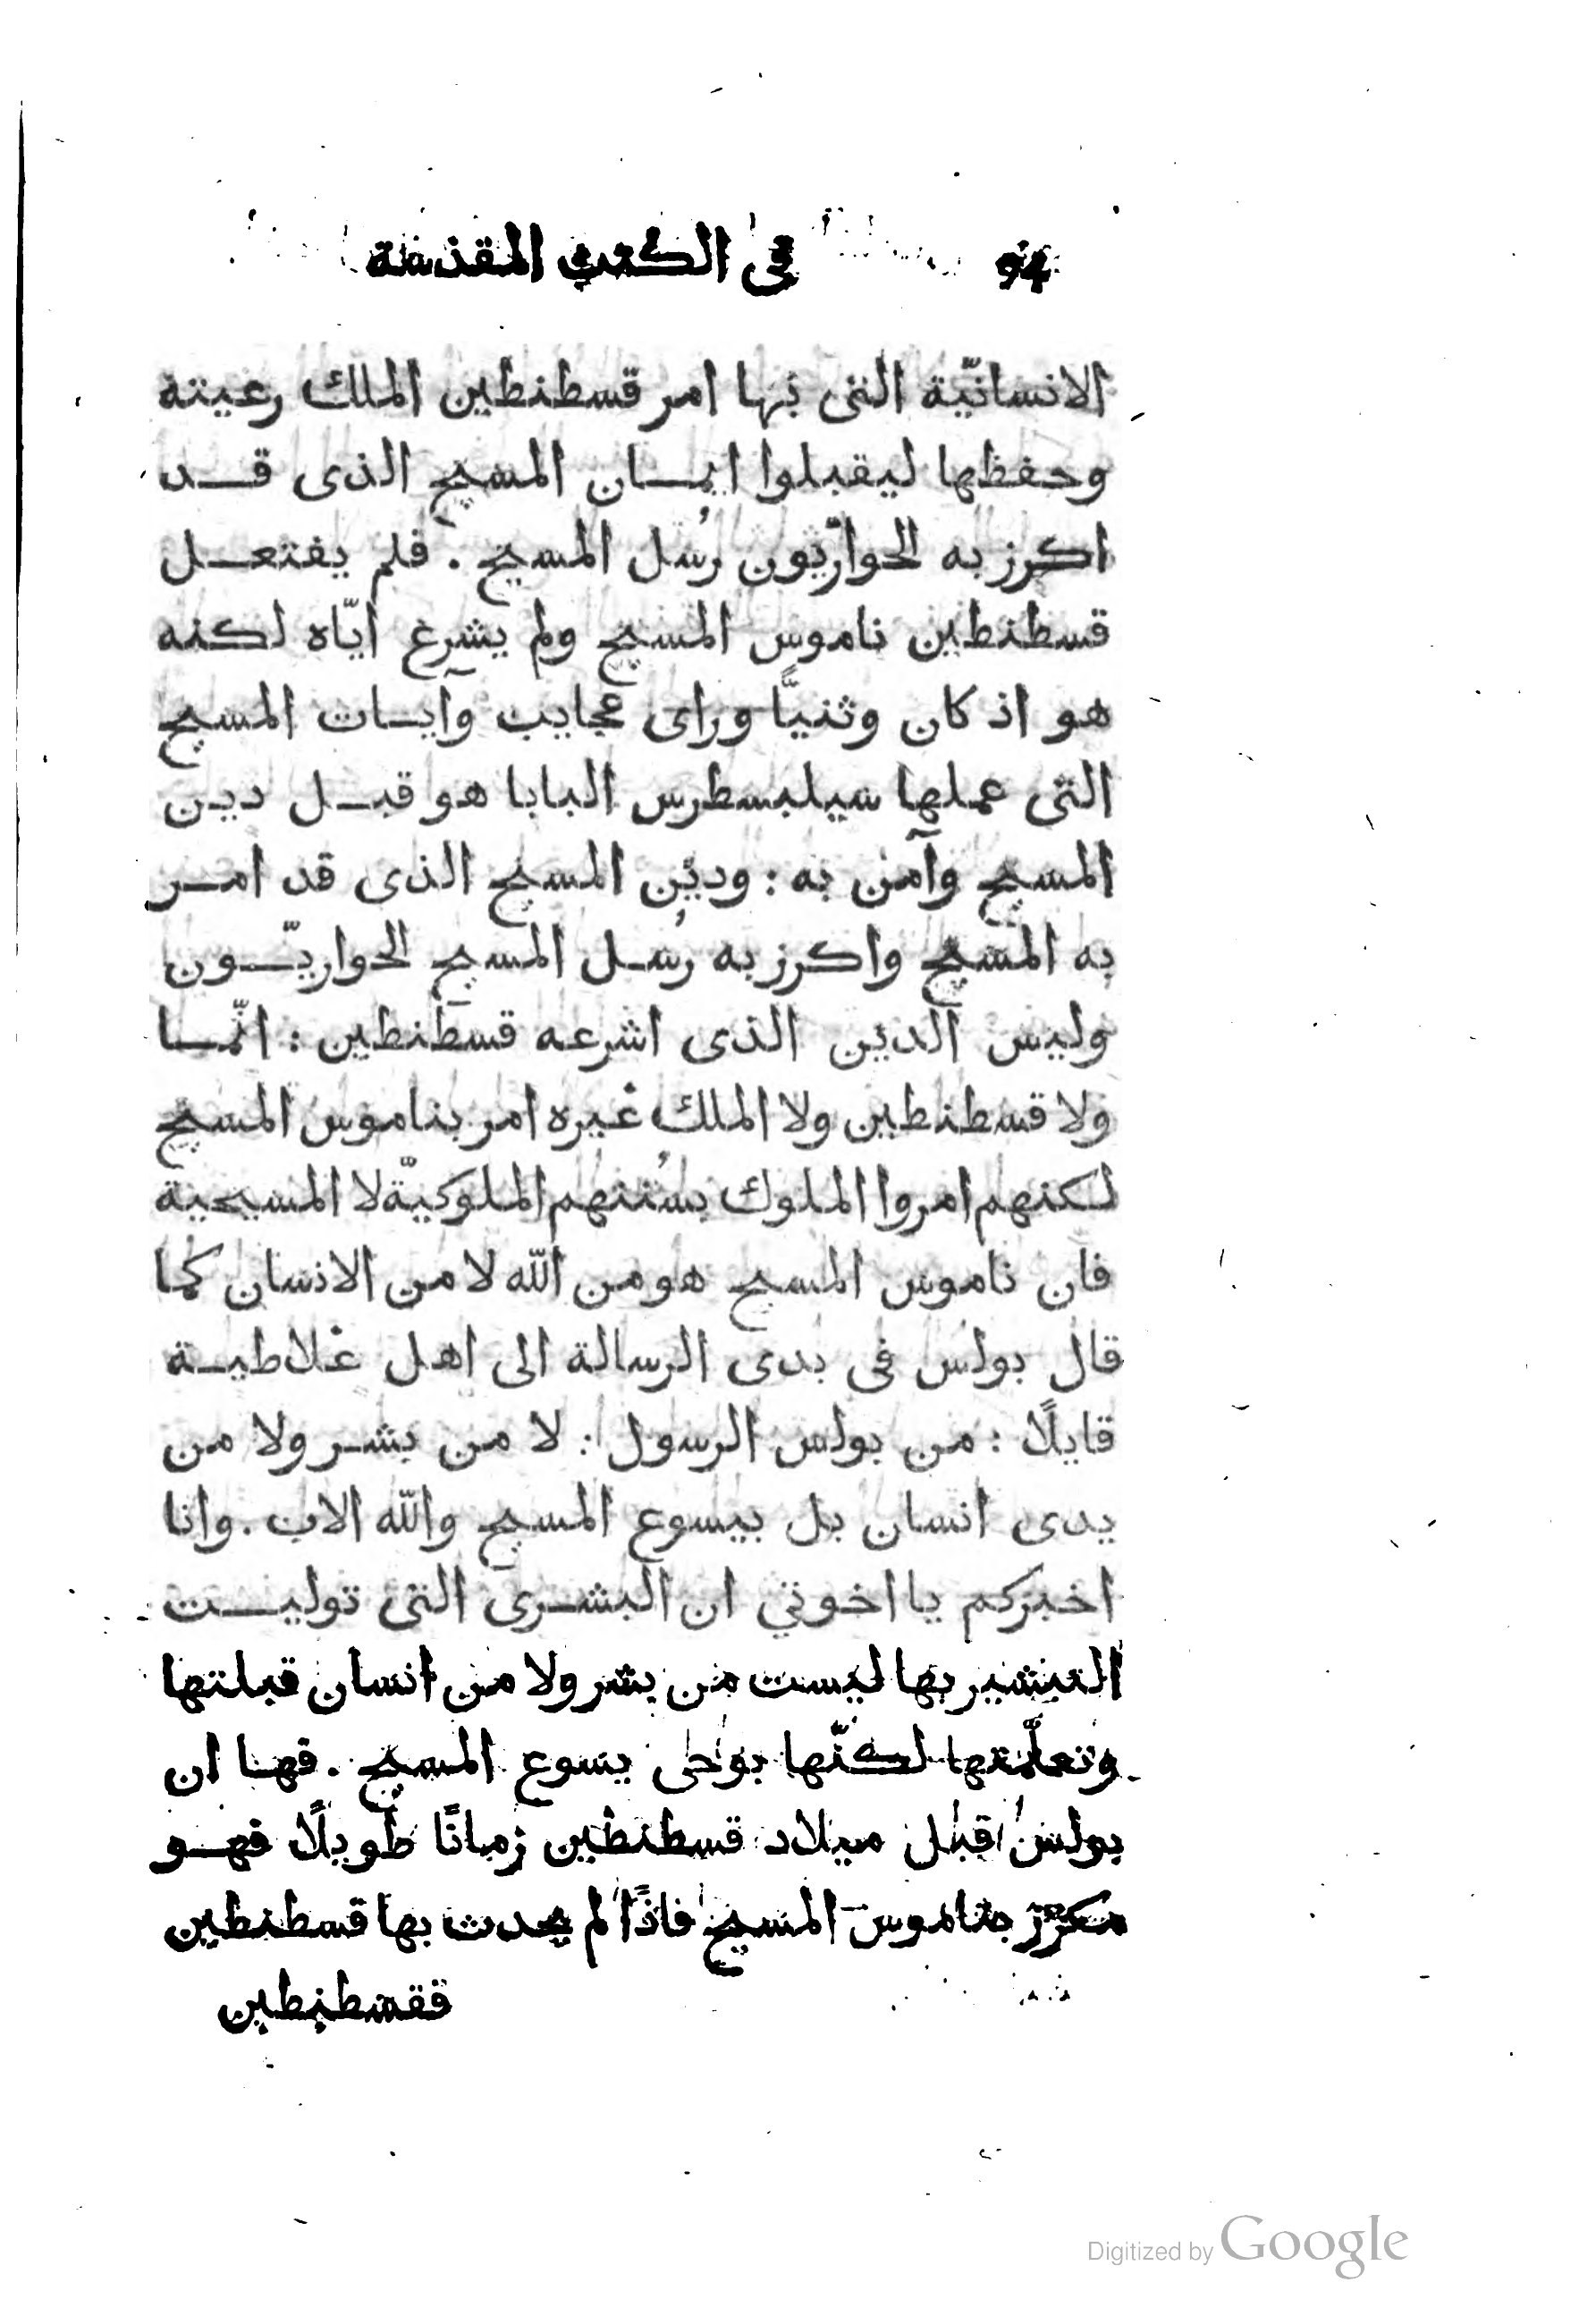 فى الكتب المقدسة
الانسانيّة التى بها امر قسطنطين الملك رعيته
وحفظها ليقبلوا ايمان المسيح الذى قد
اكرز به الحواريّون رُسل المسيح . فلم يفتعل
قسطنطين ناموس المسيح ولم يشرع ايّاه لكنه
هو اذ كان وثنيًّا وراى عجايب وآيات المسيح
التى عملها سيلبسطرس البابا هو قبل دين
المسيح وآمن به : ودين المسيح الذى قد امر
به المسيح واكرز به رُسل المسيح الحواريّون
وليس الدين الذى اشرعه قسطنطين : انّما
ولا قسطنطين ولا الملك غيره امر بناموس المسيح
لكنهم امروا الملوك بسُننهم الملوكيّة لا المسيحية
فان ناموس المسيح هو من الله لا من الانسان كما
قال بولس فى بدى الرسالة الى اهل غلاطية
قايلًا : من بولس الرسول : لا من بشر ولا من
يدى انسان بل بيسوع المسيح والله الاب . وانا
اخبركم يا اخوتي ان البشرى التى توليت
التبشير بها ليست من بشر ولا من انسان قبلتها
وتعلّمتها لكنّها بوحى يسوع المسيح . فها ان
بولس قبل ميلاد قسطنطين زمانًا طويلًا فهو
مكرّز بناموس المسيح فاذًا لم يحدث بها قسطنطين
فقسطنطين
Digitized by Google